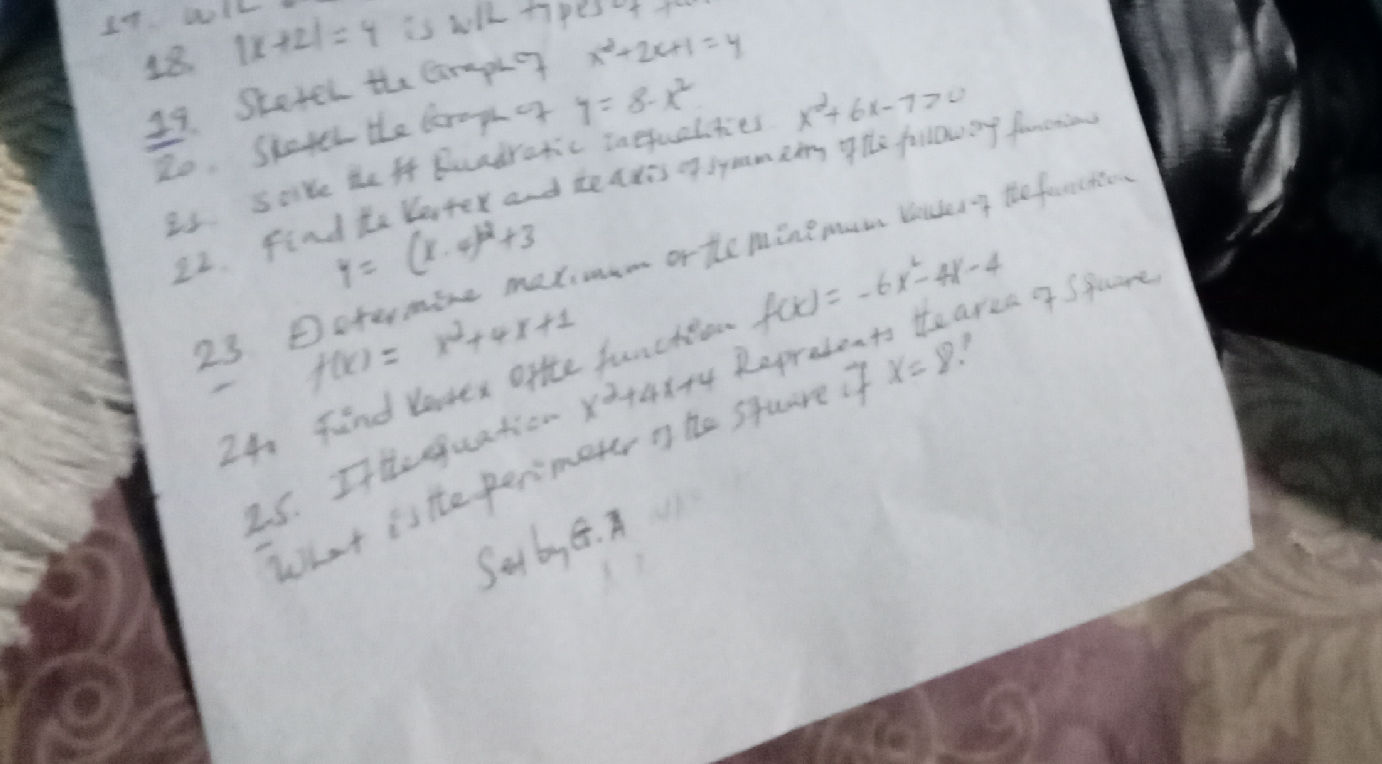 17. Wh
18. |x+2| = y is wh types of
19. Sketch the Graph of x²+2x+1 = y
20. Sketch the Graph of y = 8-x²
21. Solve the ff Quadratic inequalities x²+6x-7>0
22. Find the Vertex and the axis of symmetry of the following functions
y = (x-4)²+3
23 Determine maximum or the minimum Values of the function
f(x) = x²+4x+1
24. Find Vertex of the function f(x) = -6x²-4x-4
25. If the equation x²+4x+4 Represents the area of Square
What is the perimeter of the square if x=8?
Set by G.A